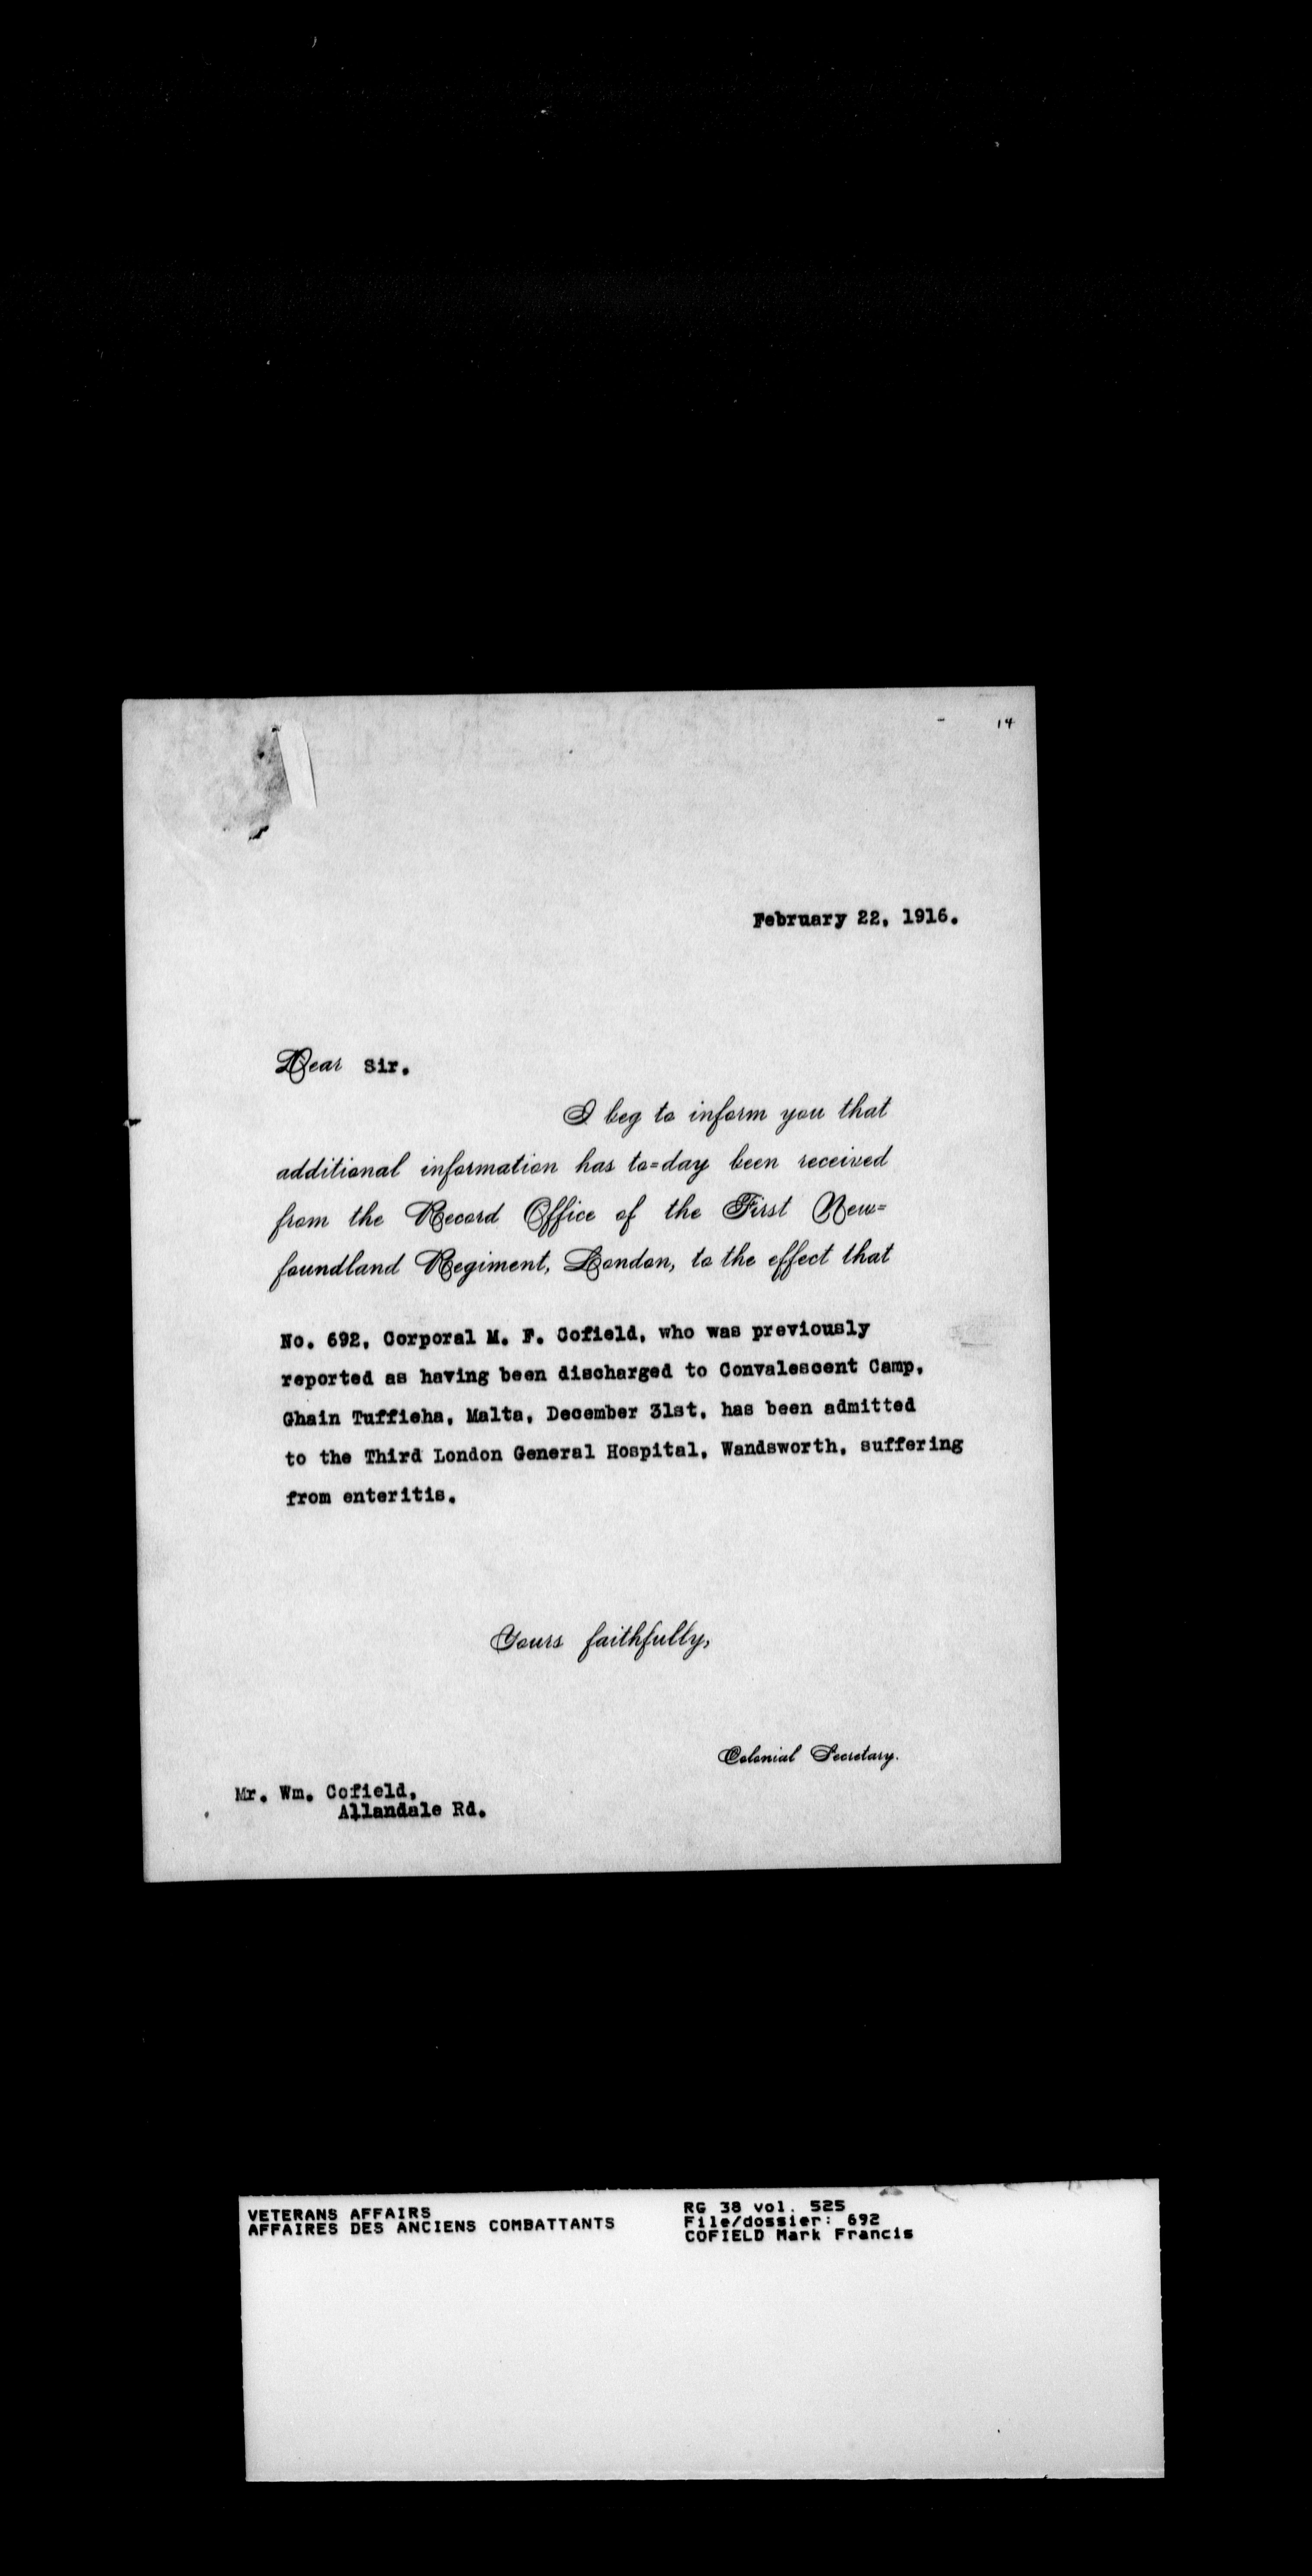 14
February 22, 1916.
Dear Sir.
I beg to inform you that
additional information has to=day been received
from the Record Office of the First New=
foundland Regiment, London, to the effect that
No. 692, Corporal M. F. Cofield, who was previously
reported as having been discharged to Convalescent Camp,
Ghain Tuffieha, Malta, December 31st, has been admitted
to the Third London General Hospital, Wandsworth, suffering
from enteritis.
Yours faithfully,
Colonial Secretary.
Mr. Wm. Cofield,
Allandale Rd.
VETERANS AFFAIRS
AFFAIRES DES ANCIENS COMBATTANTS
RG 38 vol. 525
File/dossier: 692
COFIELD Mark Francis